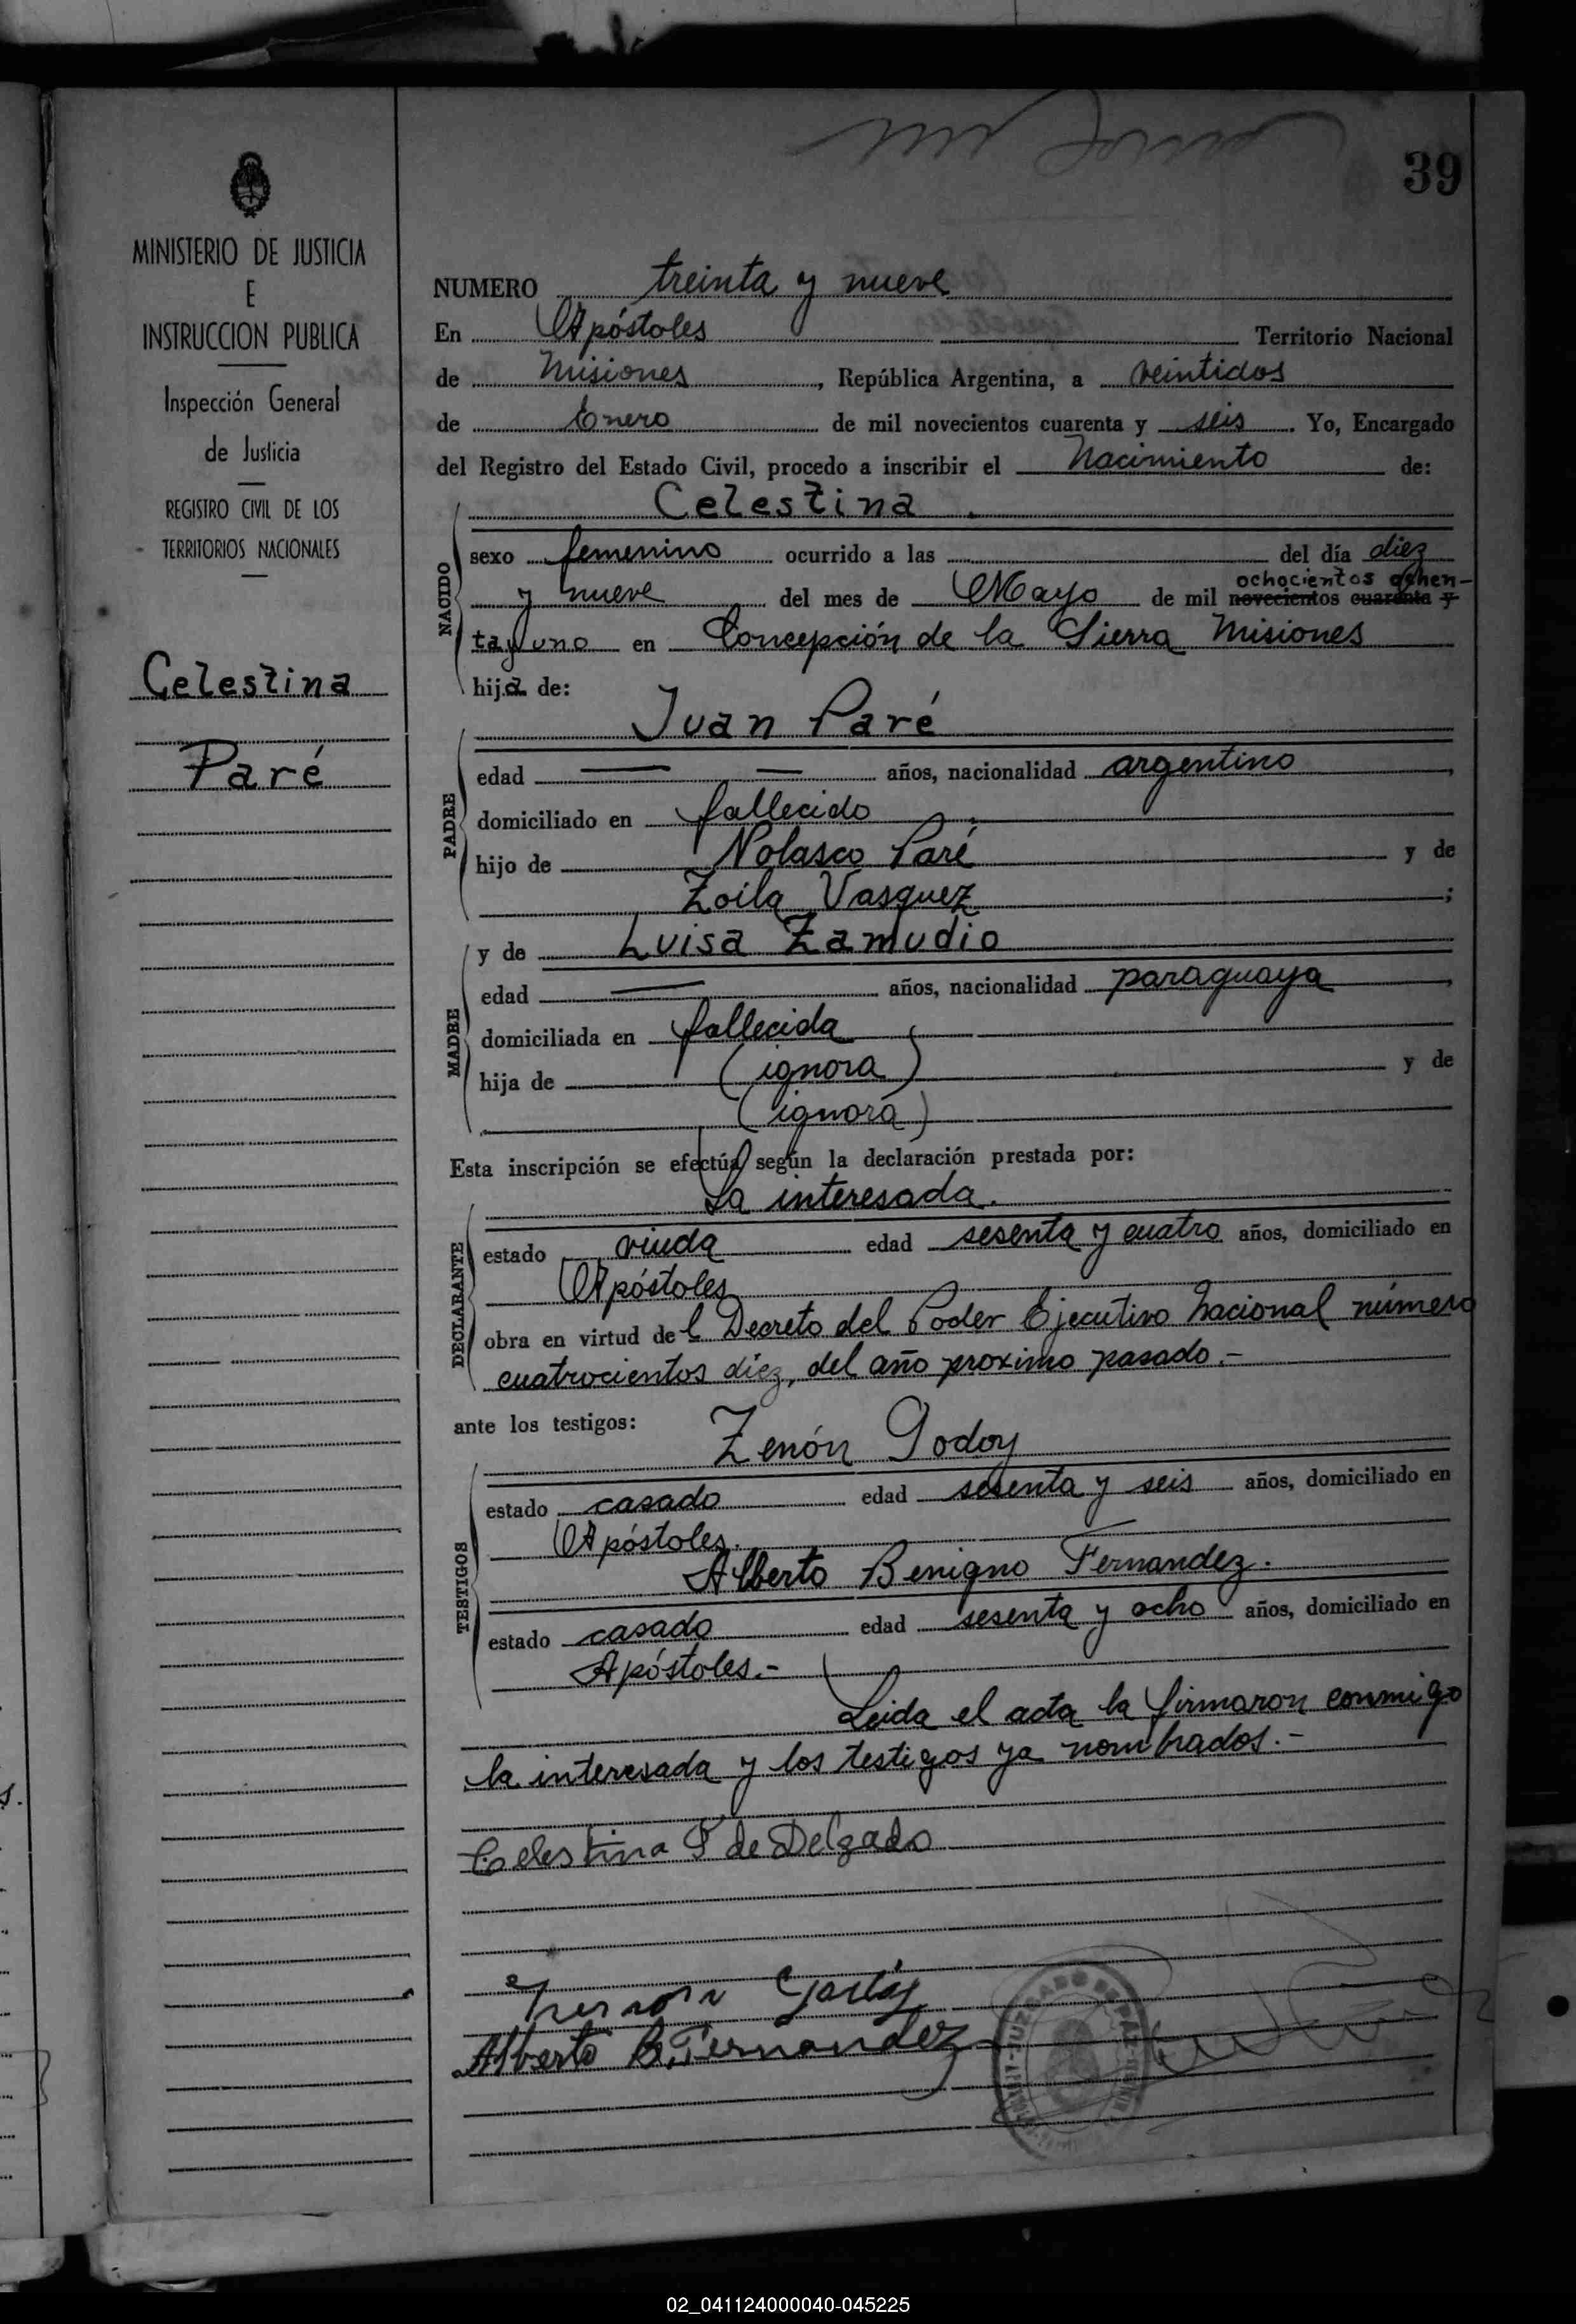 39
MINISTERIO DE JUSTICIA
E
INSTRUCCION PUBLICA
Inspección General
de Justicia
REGISTRO CIVIL DE LOS
TERRITORIOS NACIONALES
Celestina
Paré
NUMERO treinta y nueve
En Apóstoles Territorio Nacional
de Misiones, República Argentina, a veintidos
de Enero de mil novecientos cuarenta y seis. Yo, Encargado
del Registro del Estado Civil, procedo a inscribir el Nacimiento de:
Celestina.
NACIDO
sexo femenino ocurrido a las del día diez
ochocientos ochen-
y nueve del mes de Mayo de mil novecientos cuarenta y
ta y uno en Concepción de la Sierra Misiones
hija de:
Juan Paré
PADRE
edad — — años, nacionalidad argentino,
domiciliado en fallecido
hijo de Nolasco Paré y de
Zoila Vasquez;
y de Luisa Zamudio
MADRE
edad — años, nacionalidad paraguaya,
domiciliada en fallecida
hija de (ignora) y de
(ignora)
Esta inscripción se efectúa según la declaración prestada por:
La interesada.
DECLARANTE
estado viuda edad sesenta y cuatro años, domiciliado en
Apóstoles
obra en virtud del Decreto del Poder Ejecutivo Nacional número
cuatrocientos diez, del año proximo pasado.-
ante los testigos:
Zenón Godoy
TESTIGOS
estado casado edad sesenta y seis años, domiciliado en
Apóstoles.
Alberto Benigno Fernandez.
estado casado edad sesenta y ocho años, domiciliado en
Apóstoles.-
Leida el acta la firmaron conmigo
la interesada y los testigos ya nombrados.-
Celestina P de Delgado
Alberto B. Fernandez
JUZGADO DE PAZ
02_041124000040-045225